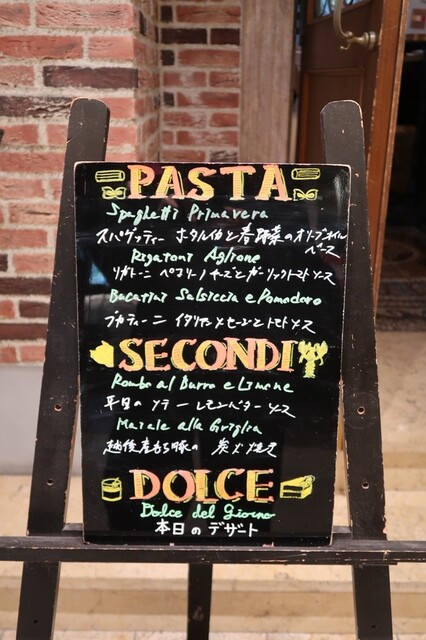 PASTA
Spaghetti Primavera
スパゲッティー ホタルイカと春野菜のオリーブオイル
ベース
Rigatoni Aglione
リガトーニ ペコリーノチーズとガーリックトマトソース
Bucatini Salsiccia e Pomodoro
ブカティーニ イタリアンソーセージとトマトソース
SECONDI
Rombo al Burro e Limone
平目のソテー レモンバターソース
Maiale alla Griglia
越後産もち豚の 炭火焼き
DOLCE
Dolce del Giorno
本日のデザート